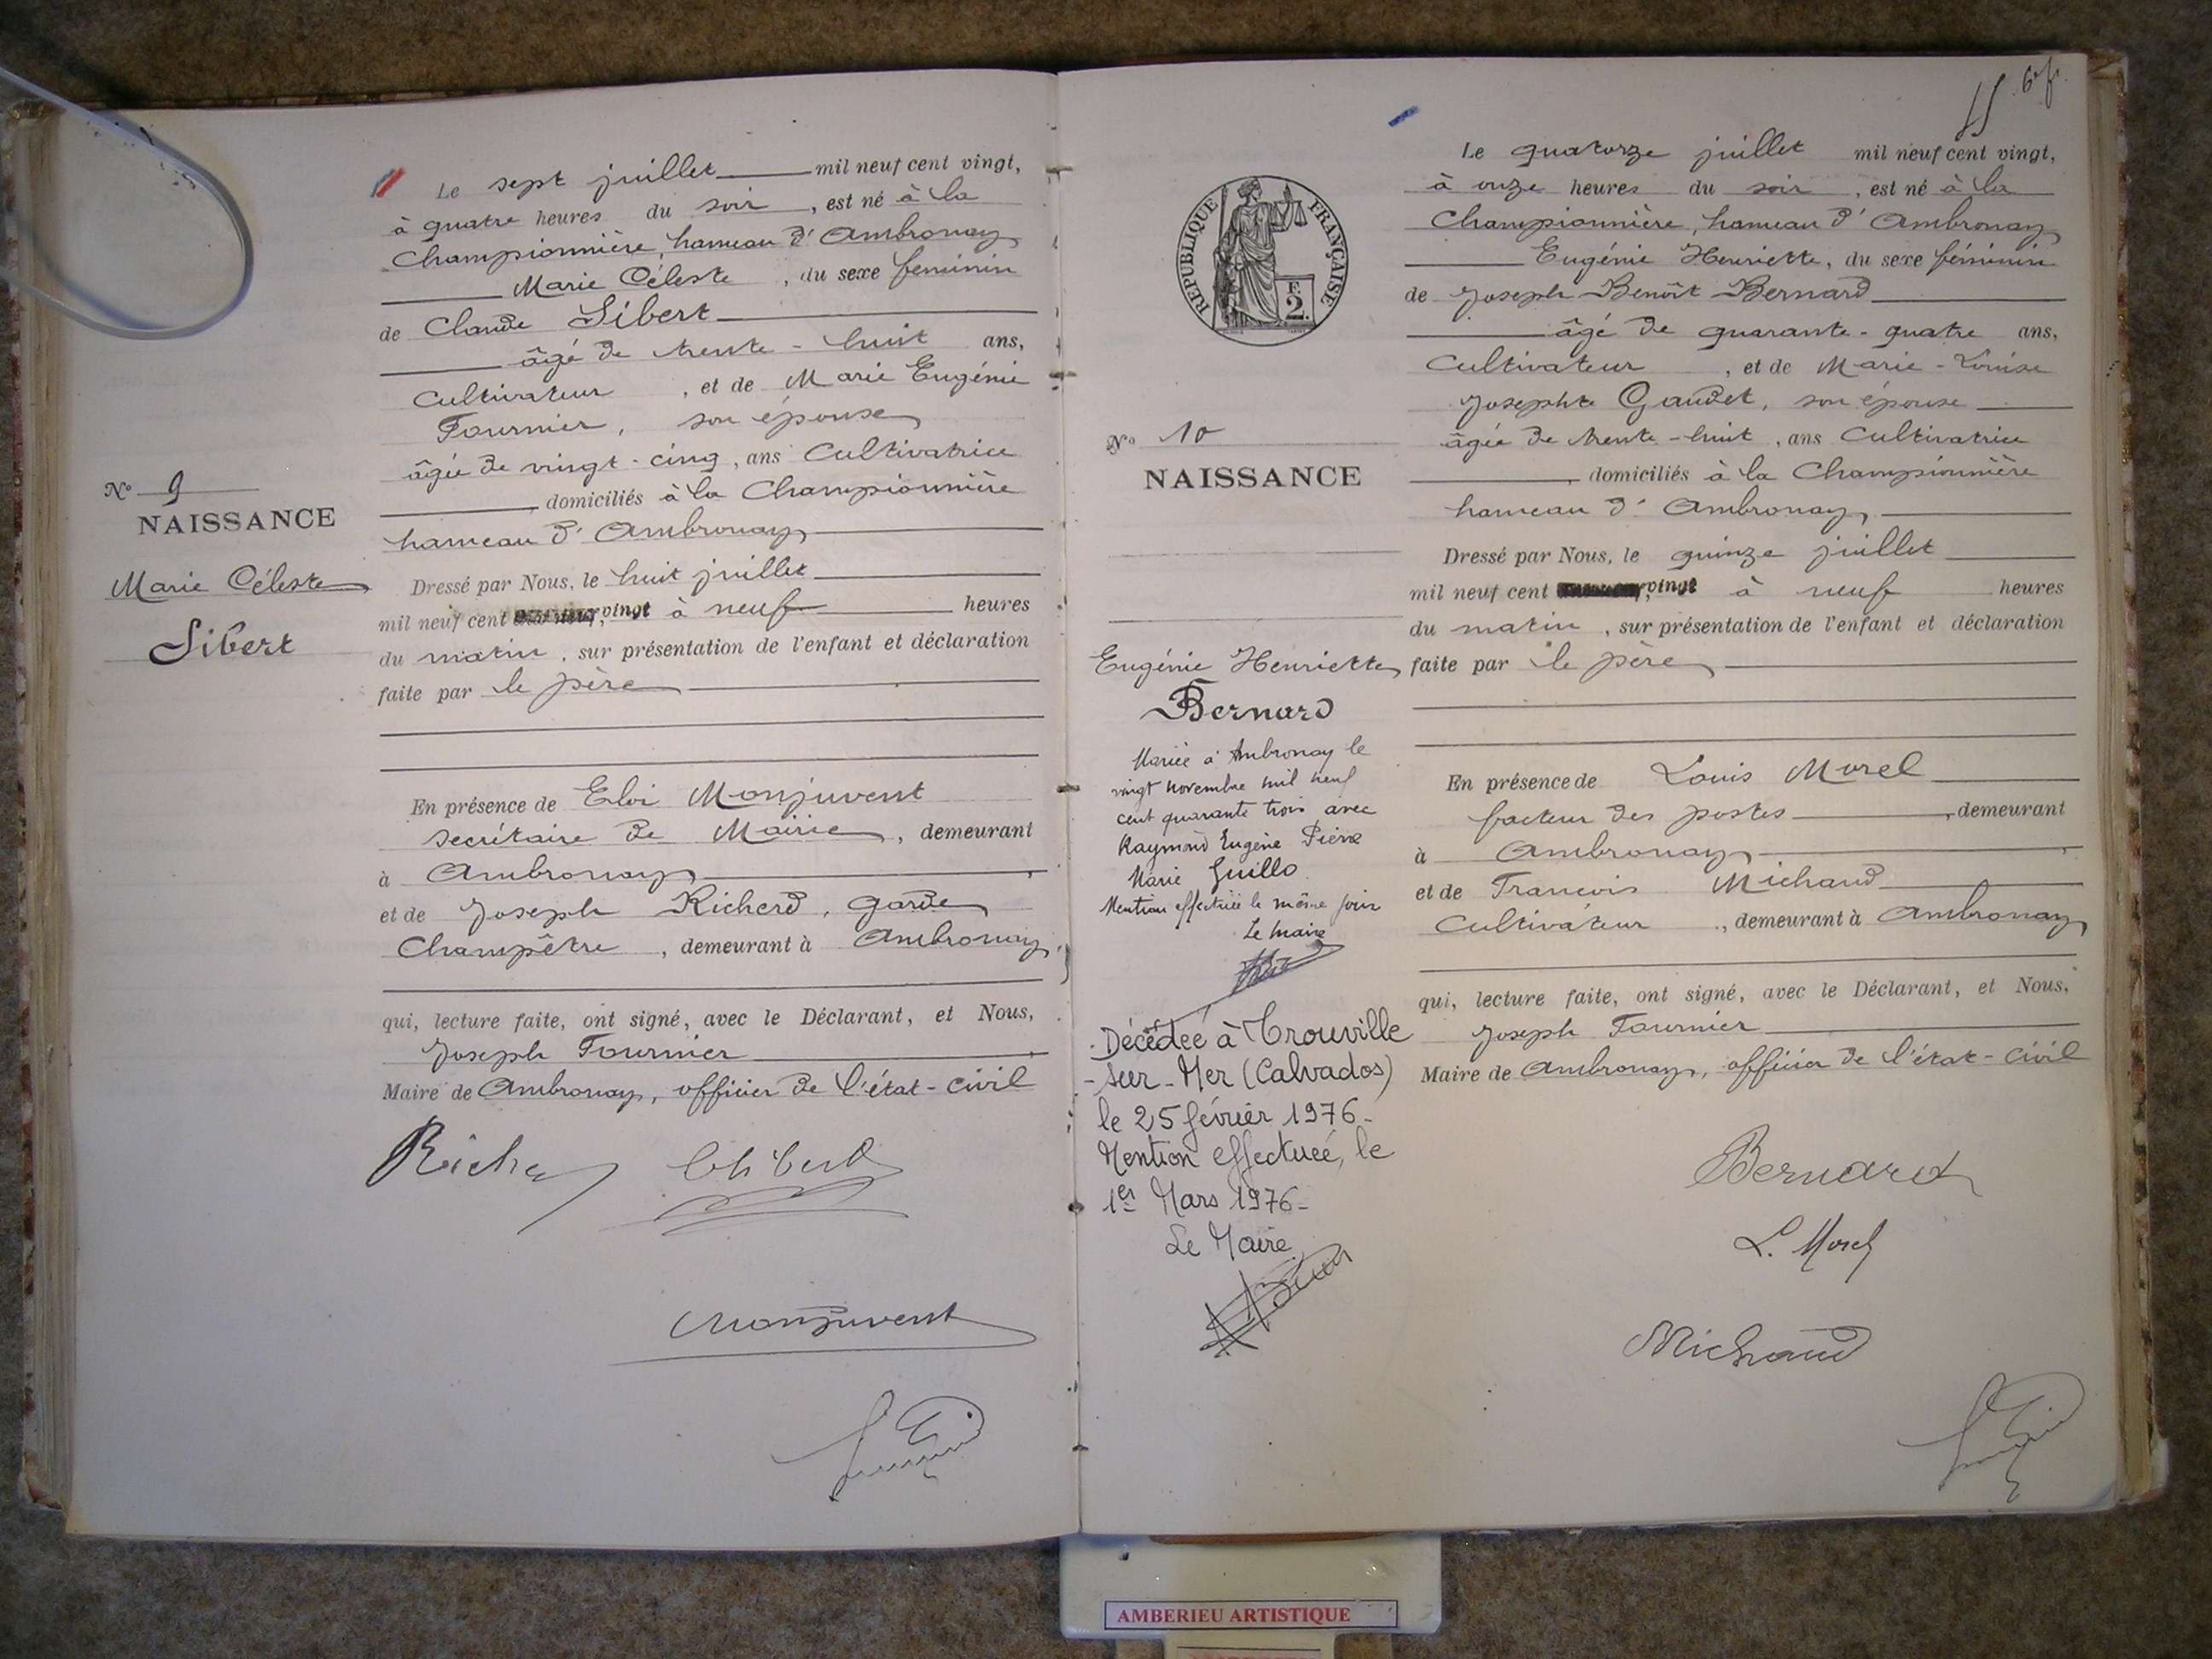 Le sept juillet mil neuf cent vingt,
à quatre heures du soir, est né à la
Championnière, hameau d'Ambronay
Marie Céleste, du sexe féminin
de Claude Sibert
âgé de trente-huit ans,
Cultivateur, et de Marie Eugénie
Fournier, son épouse
âgée de vingt-cinq, ans Cultivatrice
domiciliés à la Championnière
hameau d'Ambronay
Dressé par Nous, le huit juillet
mil neuf cent vingt à neuf heures
du matin, sur présentation de l'enfant et déclaration
faite par le père
En présence de Eloi Monjuvent
secrétaire de Mairie, demeurant
à Ambronay,
et de Joseph Richerd, garde
Champêtre, demeurant à Ambronay,
qui, lecture faite, ont signé, avec le Déclarant, et Nous,
Joseph Fournier
Maire de Ambronay, officier de l'état-civil
N° 9
NAISSANCE
Marie Céleste
Sibert
Monjuvent
6e f.
RÉPUBLIQUE FRANÇAISE
F.
2.
N° 10
NAISSANCE
Eugénie Henriette
Bernard
Mariée à Ambronay le
vingt novembre mil neuf
cent quarante trois avec
Raymond Eugène Pierre
Marie Guillo.
Mention effectuée le même jour
Le maire
Décédée à Trouville
-sur-Mer (Calvados)
le 25 février 1976-
Mention effectuée, le
1er Mars 1976-
Le Maire
Le quatorze juillet mil neuf cent vingt,
à onze heures du soir, est né à la
Championnière, hameau d'Ambronay
Eugénie Henriette, du sexe féminin
de Joseph Benoît Bernard
âgé de quarante-quatre ans,
Cultivateur, et de Marie-Louise
Josephte Gaudet, son épouse
âgée de trente-huit, ans Cultivatrice
domiciliés à la Championnière
hameau d'Ambronay,
Dressé par Nous, le quinze juillet
mil neuf cent vingt à neuf heures
du matin, sur présentation de l'enfant et déclaration
faite par le père
En présence de Louis Morel
facteur des postes, demeurant
à Ambronay,
et de François Michaud
Cultivateur, demeurant à Ambronay
qui, lecture faite, ont signé, avec le Déclarant, et Nous,
Joseph Fournier
Maire de Ambronay, officier de l'état-civil
Bernard
L. Morel
Michaud
AMBERIEU ARTISTIQUE